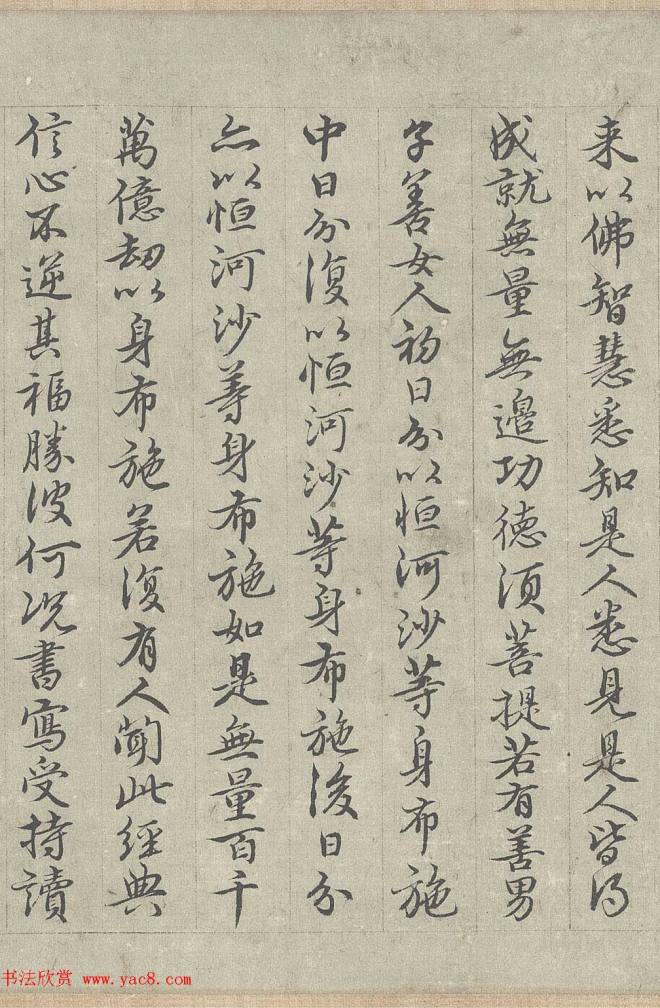 来以佛智慧悉知是人悉見是人皆得
成就無量無邊功德須菩提若有善男
子善女人初日分以恒河沙等身布施
中日分復以恒河沙等身布施後日分
亦以恒河沙等身布施如是無量百千
萬億劫以身布施若復有人聞此經典
信心不逆其福勝彼何況書寫受持讀
书法欣赏 www.yac8.com